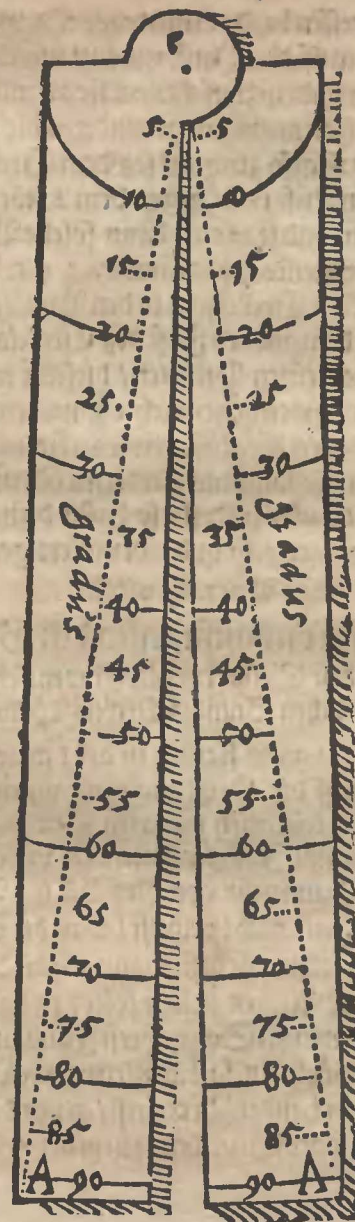 5 5
10 10
15 15
20 20
25 25
30 30
gradus gradus
35 35
40 40
45 45
50 50
55 55
60 60
65 65
70 70
75 75
80 80
85 85
A 90 90 A